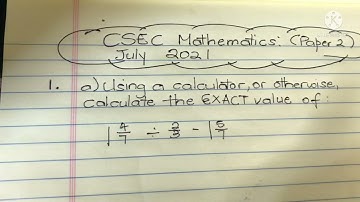 CSEC Mathematics: (Paper 2)
July 2021
1. a) Using a calculator, or otherwise,
calculate the EXACT value of:
1 4/7 ÷ 2/3 - 1 5/7